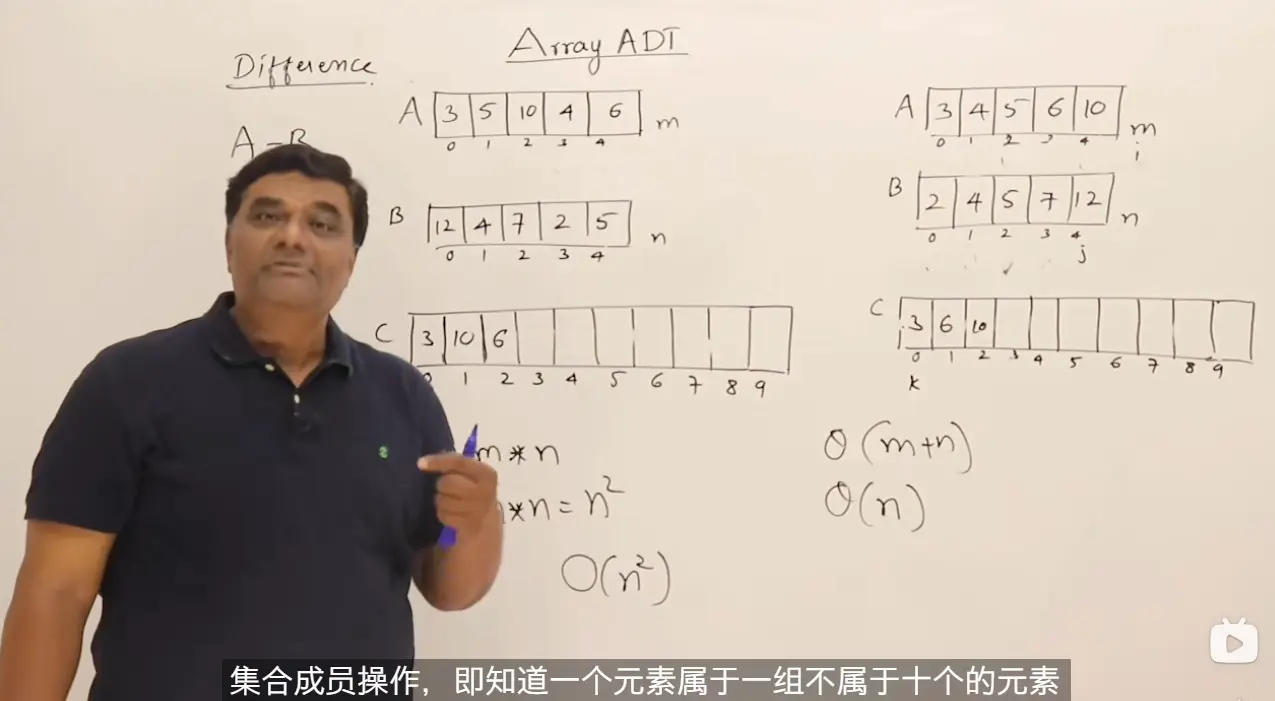 Array ADT
Difference
A - B
A 3 5 10 4 6 m
0 1 2 3 4
B 12 4 7 2 5 n
0 1 2 3 4
C 3 10 6
0 1 2 3 4 5 6 7 8 9
m * n
* n = n²
O(n²)
A 3 4 5 6 10 m
0 1 2 3 4 i
B 2 4 5 7 12 n
0 1 2 3 4
j
C 3 6 10
0 1 2 3 4 5 6 7 8 9
k
θ(m+n)
θ(n)
集合成员操作，即知道一个元素属于一组不属于十个的元素